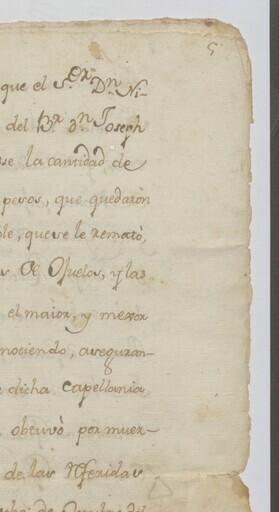 que el S.or Dn Ni-
del Br. dn Joseph
se la cantidad de
pesos, que quedaron
que se le remató,
el maior, y menor
nociendo, aseguran-
dicha capellania
obtuvó por muer-
de las Referidas